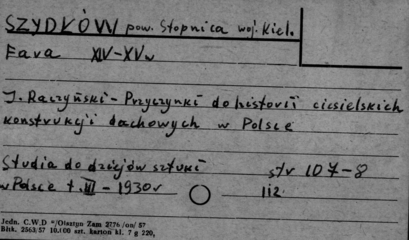 SZYDŁÓW pow. Stopnica woj. Kiel.
Fara XIV-XVw
J. Raczyński - Przyczynki do historii ciesielskich
konstrukcji dachowych w Polsce
Studia do dziejów sztuki str 107-8
w Polsce t. III - 1930r 112
Jedn. C.W.D */Olsztyn Zam 2776/on/57
Błtk. 2563/57 10.100 szt. karton kl. 7 g 220,